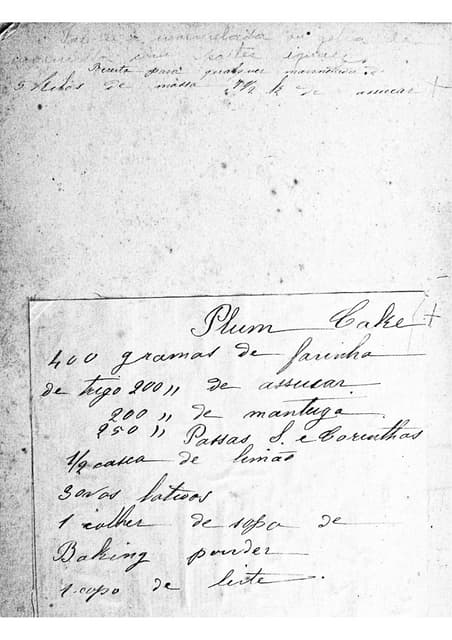 Receita para qualquer marmelada
5 kilos de massa 4½ k de assucar +
Plum Cake +
400 gramas de farinha
de trigo 200 ,, de assucar
200 ,, de manteiga
250 ,, Passas S. e Corinthas
1/2 casca de limão
3 ovos batidos
1 colher de sopa de
Baking powder
1 copo de leite.